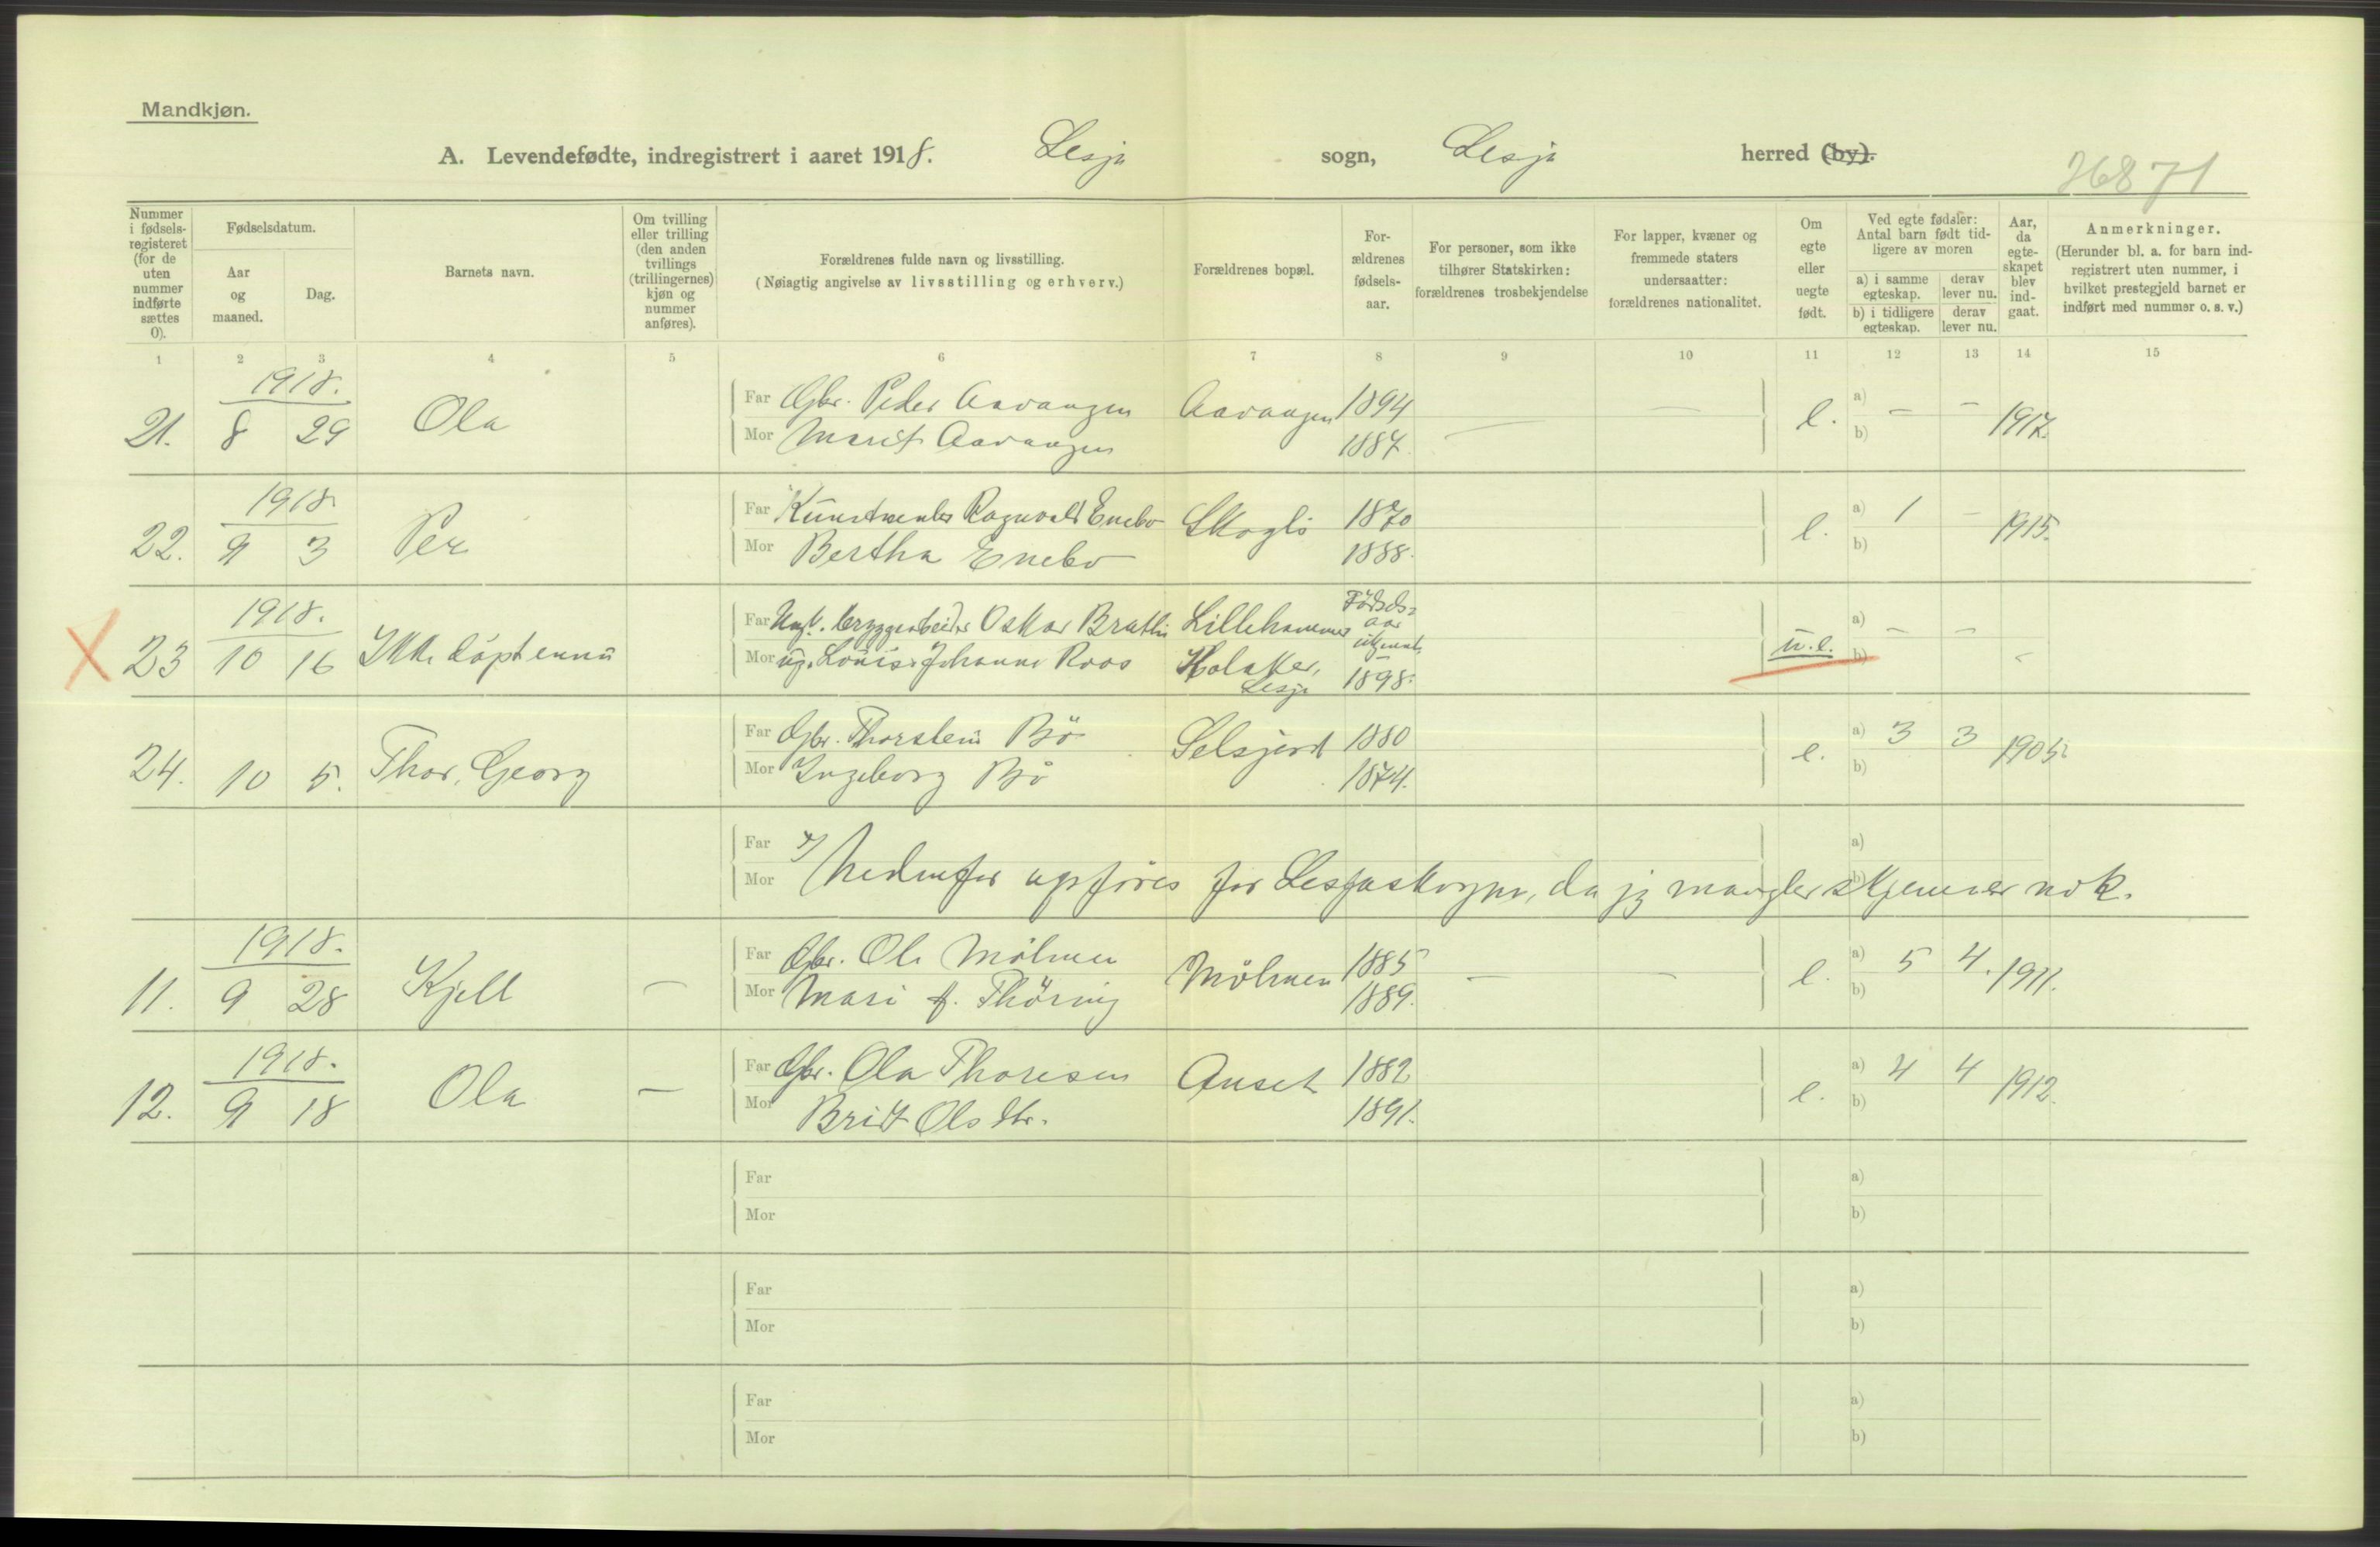 Mandkjøn.
A. Levendefødte, indregistrert i aaret 1918. Lesja sogn, Lesja herred (by).
26871
Nummer i fødsels-registeret (for de uten nummer indførte sættes 0).
Fødselsdatum.
Aar og maaned.
Dag.
Barnets navn.
Om tvilling eller trilling (den anden tvillings (trillingernes) kjøn og nummer anføres).
Forældrenes fulde navn og livsstilling.
(Nøiagtig angivelse av livsstilling og erhverv.)
Forældrenes bopæl.
For-ældrenes fødsels-aar.
For personer, som ikke tilhører Statskirken: forældrenes trosbekjendelse
For lapper, kvæner og fremmede staters undersaatter: forældrenes nationalitet.
Om egte eller uegte født.
Ved egte fødsler: Antal barn født tid-ligere av moren
a) i samme egteskap. derav lever nu.
b) i tidligere egteskap. derav lever nu.
Aar, da egte-skapet blev ind-gaat.
Anmerkninger.
(Herunder bl. a. for barn ind-registrert uten nummer, i hvilket prestegjeld barnet er indført med nummer o. s. v.)
1 2 3 4 5 6 7 8 9 10 11 12 13 14 15
1918.
21. 8 29 Ola
Far Gbr. Peder Aavangen Aavangen 1894 — a) — —
Mor Marit Aavangen 1887. — e. b) 1917.
1918.
22. 9 3 Per
Far Kunstmaler Ragnvald Enebo Skogli 1870 a) 1 —
Mor Bertha Enebo 1888. e. b) 1915.
1918.
X 23 10 16 Ikke döpt ennu
Far Ungk. bryggearbeider Oskar Bratli Lillehammer Födsels=aar ukjendt a) — —
Mor ug. Louise Johanne Roos Holaker, Lesja 1898. u.e. b) -
24. 10 5. Thor, Georg
Far Gbr. Thorstein Bö Selsjord 1880 a) 3 3
Mor Ingeborg Bö 1874. e. b) 1905.
Far
Mor Nedenfor opföres for Lesjaskogen, da jeg mangler skjemaer nok.
a)
b)
1918.
11. 9 28 Kjell —
Far Gbr. Ole Mölmen Mölmen 1885 — — a) 5 4.
Mor Mari f. Thöring 1889. e. b) 1911.
1918.
12. 9 18 Ola —
Far Gbr. Ola Thoresen Enset 1882 a) 4 4
Mor Brit Olsdtr. 1891. e. b) 1912.
Far a)
Mor b)
Far a)
Mor b)
Far a)
Mor b)